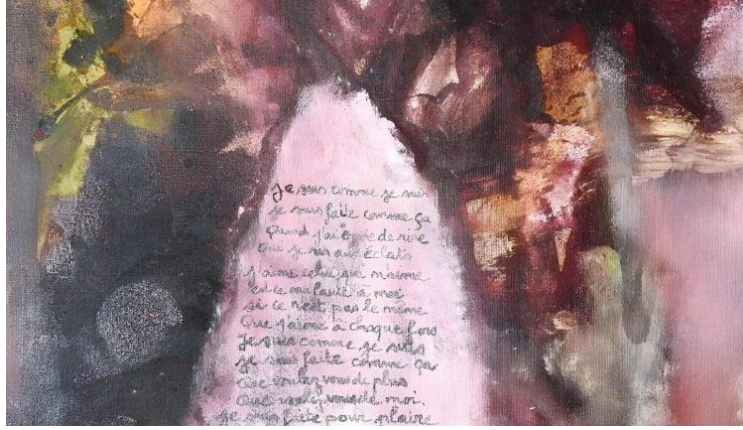 Je suis comme je suis
je suis faite comme ça
Quand j'ai envie de rire
Oui je ris aux éclats
j'aime celui qui m'aime
est ce ma faute à moi
si ce n'est pas le même
Que j'aime à chaque fois
Je suis comme je suis
je suis faite comme ça
Que voulez vous de plus
Que voulez vous de moi.
je suis faite pour plaire